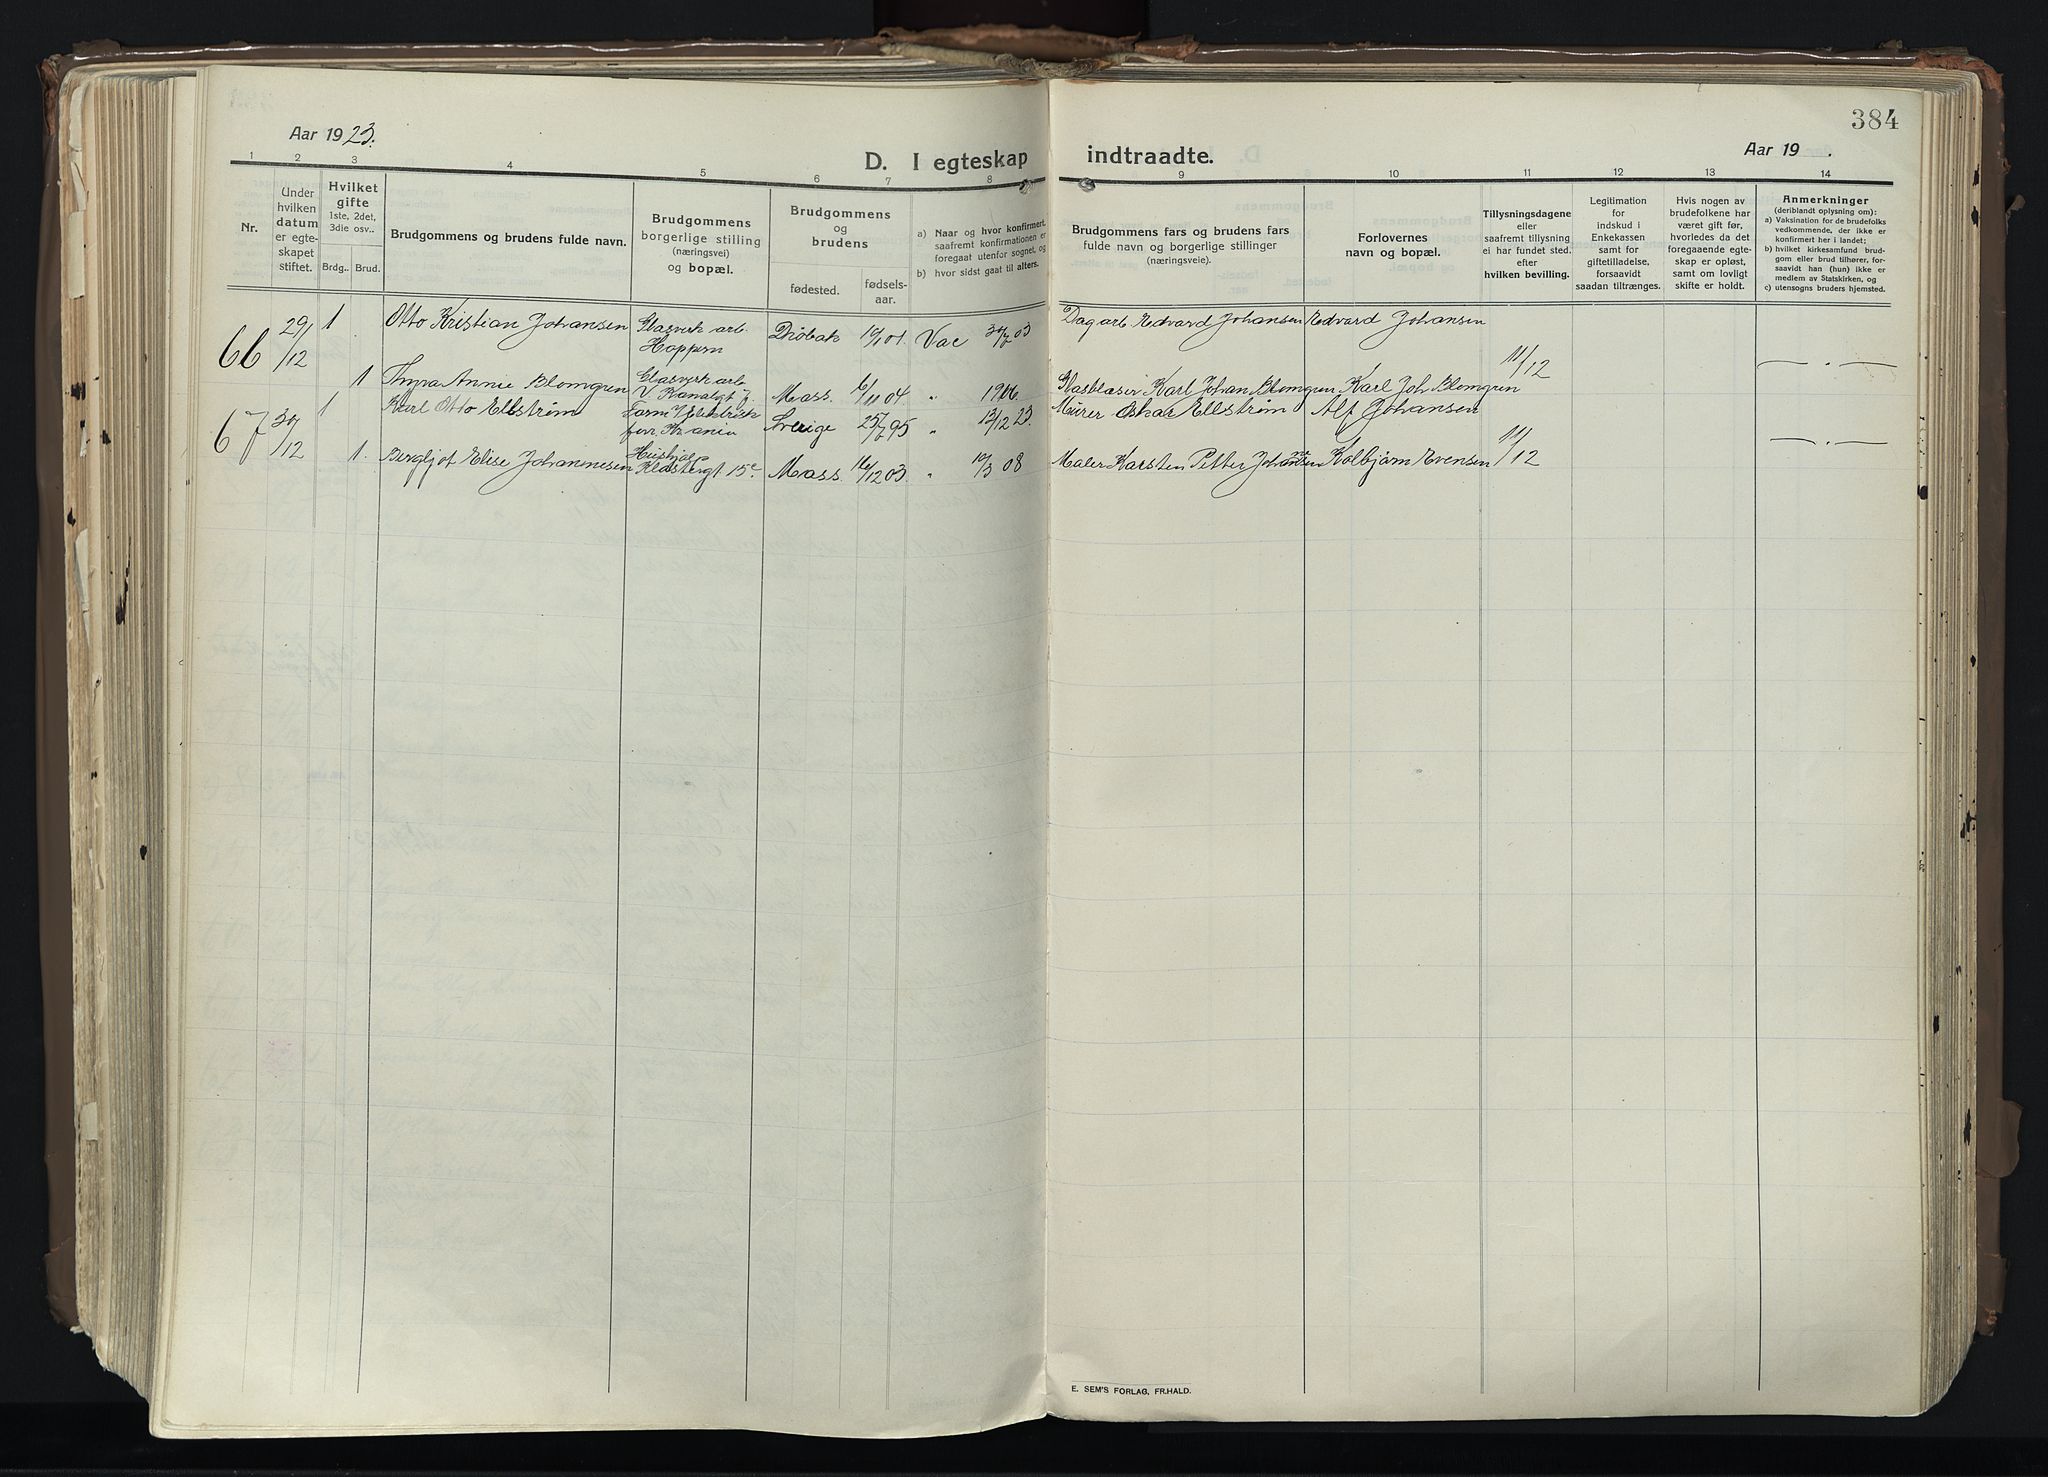 384
Aar 1923.
D. I egteskap indtraadte.
Aar 19 .
1 2 3 4 5 6 7 8 9 10 11 12 13 14
Nr.
Under
hvilken
datum
er egte-
skapet
stiftet.
Hvilket
gifte
1ste, 2det,
3die osv..
Brdg.. Brud.
Brudgommens og brudens fulde navn.
Brudgommens
borgerlige stilling
(næringsvei)
og bopæl.
Brudgommens
og
brudens
fødested.
fødsels-
aar.
a) Naar og hvor konfirmert,
saafremt konfirmationen er
foregaat utenfor sognet, og
b) hvor sidst gaat til alters.
Brudgommens fars og brudens fars
fulde navn og borgerlige stillinger
(næringsveie).
Forlovernes
navn og bopæl.
Tillysningsdagene
eller
saafremt tillysning
ei har fundet sted.
efter
hvilken bevilling.
Legitimation
for
indskud i
Enkekassen
samt for
giftetilladelse,
forsaavidt
saadan tiltrænges.
Hvis nogen av
brudefolkene har
været gift før,
hvorledes da det
foregaaende egte-
skap er opløst,
samt om lovligt
skifte er holdt.
Anmerkninger
(deriblandt oplysning om):
a) Vaksination for de brudefolks
vedkommende, der ikke er
konfirmert her i landet;
b) hvilket kirkesamfund brud-
gom eller brud tilhører, for-
saavidt han (hun) ikke er
medlem av Statskirken, og
c) utensogns bruders hjemsted.
66 29/12 1 Otto Kristian Johansen Glasverk arb. Hoppern Drøbak 10/1 01. Vac 30/7 03 Dag arb. Edvard Johansen Edvard Johansen
1 Thyra Annie Blomgren Glasverk arb V. Kanalgt Mass. 6/11 04 " 1906. Glasblåser Karl Johan Blomgren Karl Joh Blomgren 11/12 — . —
67 30/12 1 Karl Otto Ellström Sverige 25/7 95 " 13/12 23. Murer Oskar Ellström Alf Johansen
1. Bergljot Elise Johannesen Hushjelp 15c Mass. 16/12 03. " 10/3 08 Maler Karsten Petter Johannesen Kolbjørn Evensen 11/12 — . —
E. SEM'S FORLAG, FR.HALD.